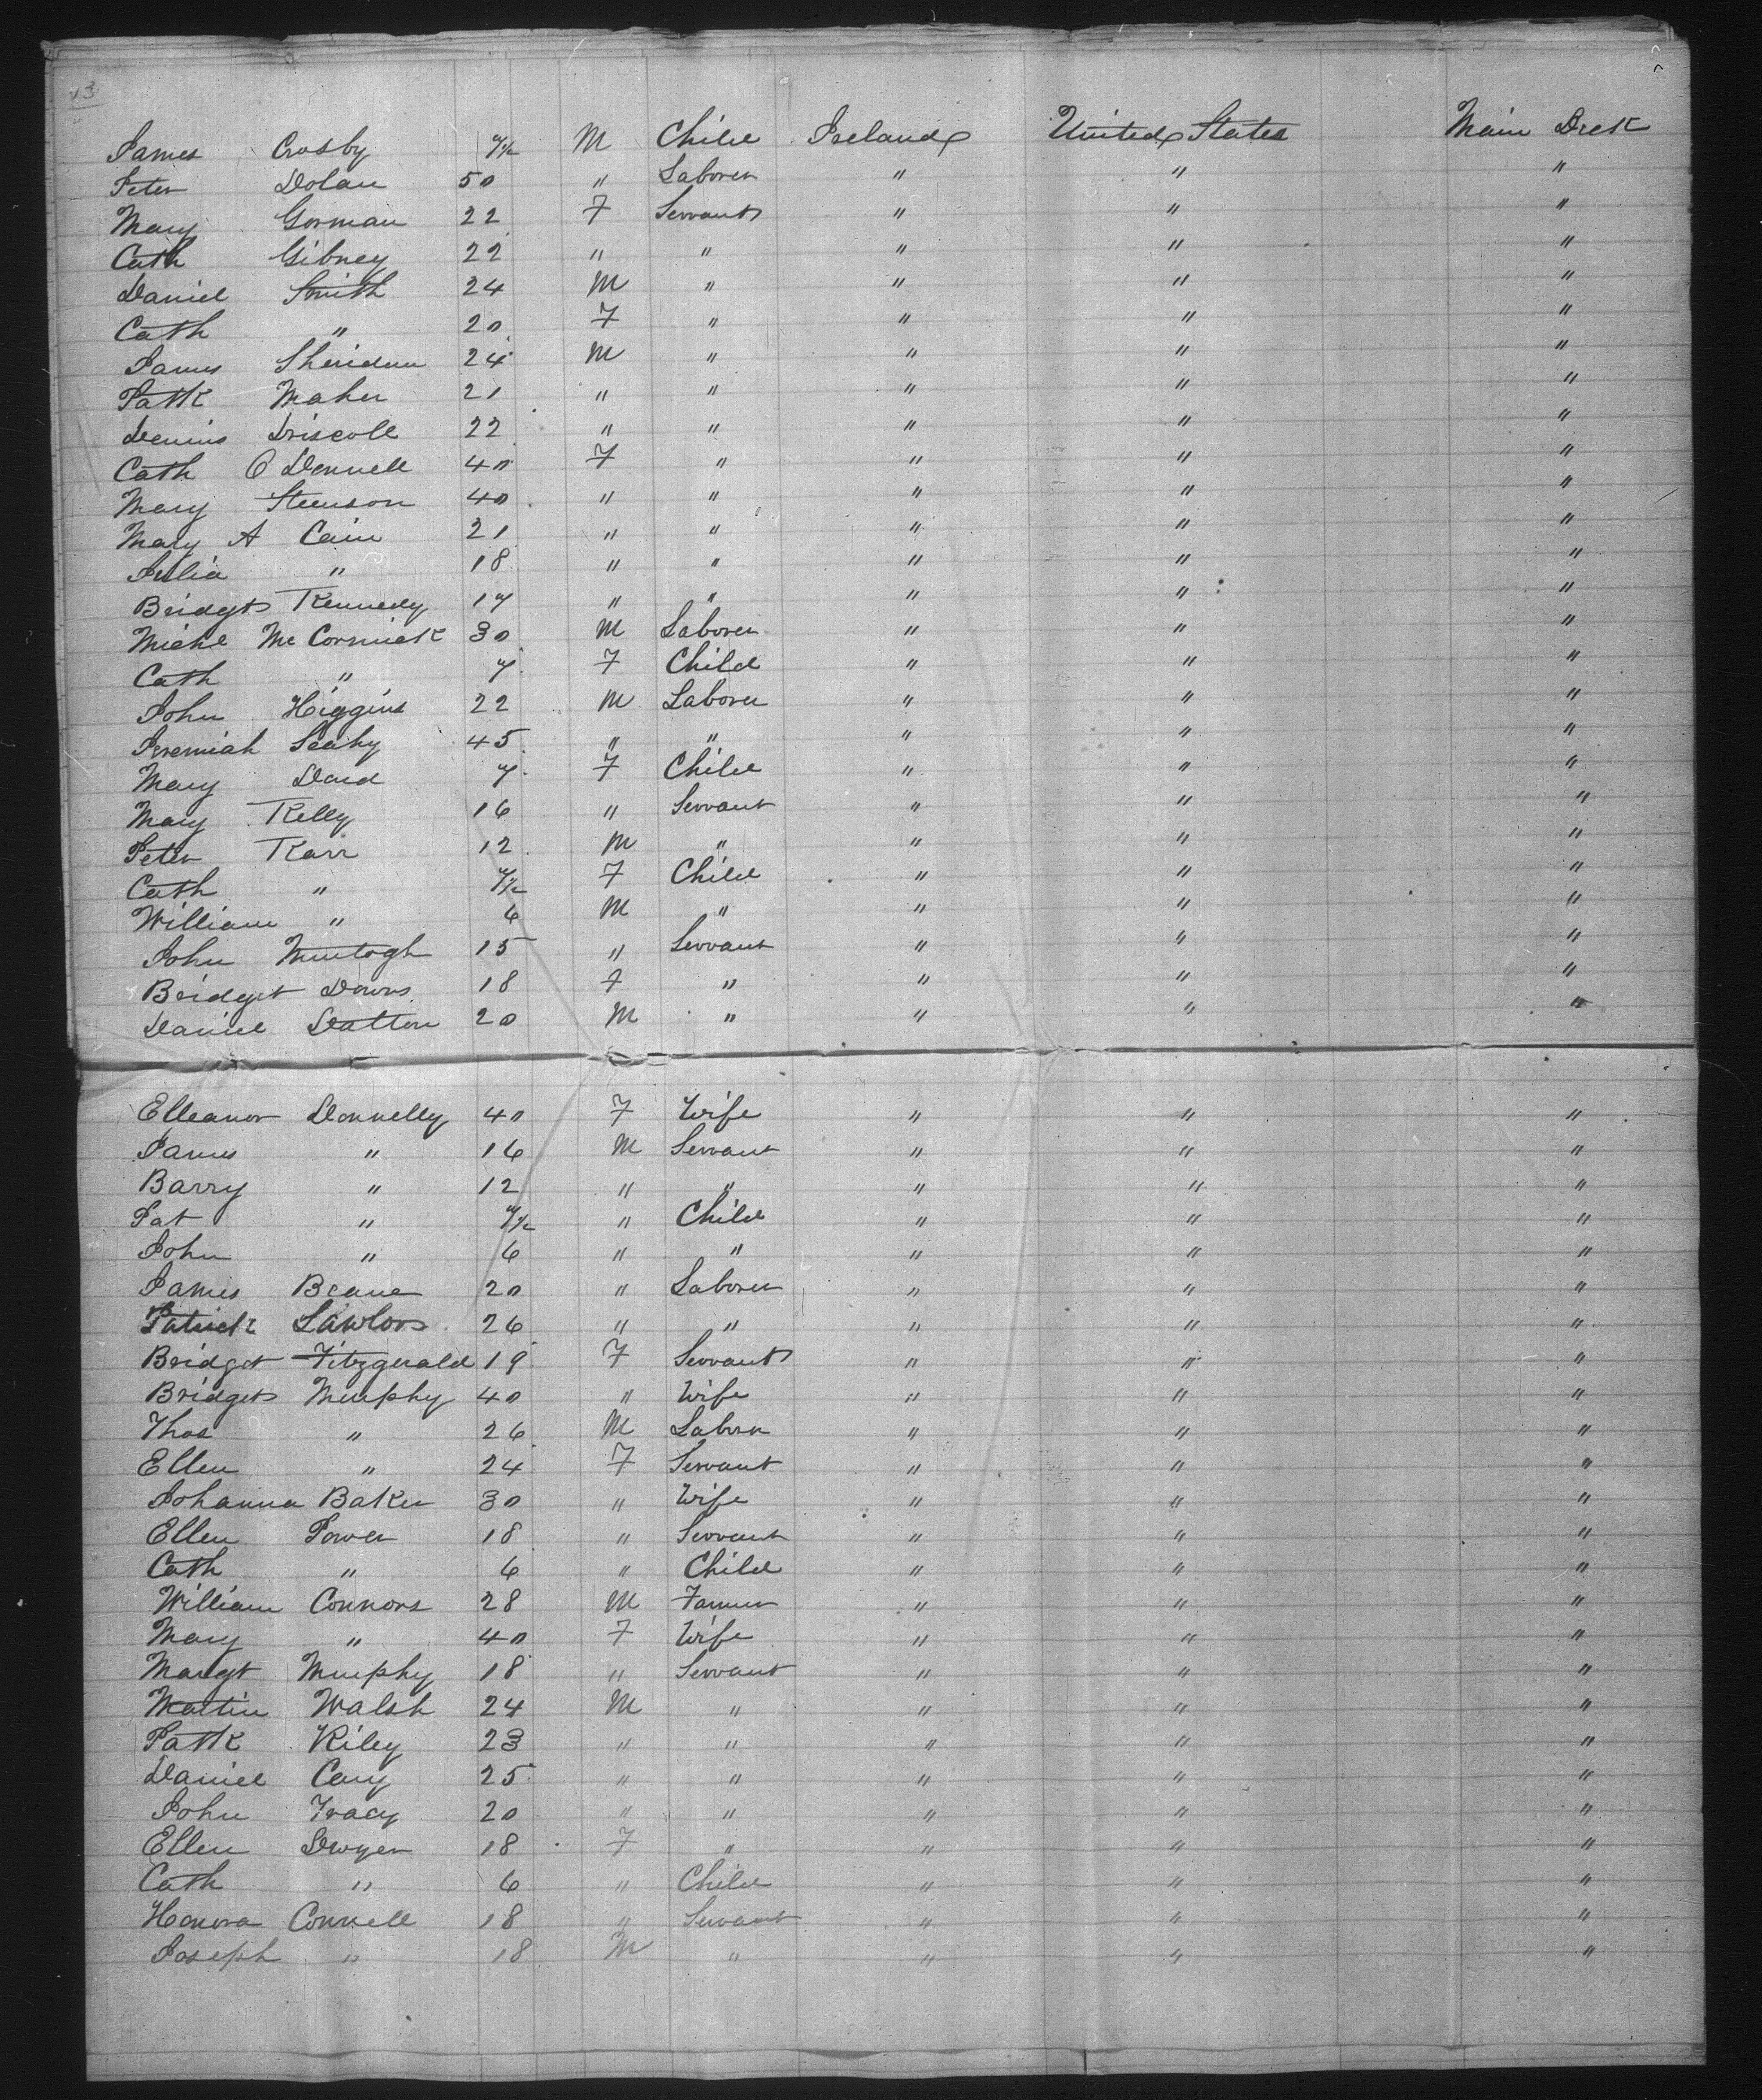 13
James Crosby 7½ M Child Ireland United States Main Deck
Peter Dolan 50 " Laborer " " "
Mary Gorman 22 F Servant " " "
Cath Gibney 22 " " " " "
Daniel Smith 24 M " " " "
Cath " 20 F " " " "
James Sheridan 24 M " " " "
Patk Maher 21 " " " " "
Dennis Driscoll 22 " " " " "
Cath O Donnell 40 F " " " "
Mary Steenson 40 " " " " "
Mary A Cain 21 " " " " "
Julia " 18 " " " " "
Bridgt Kennedy 17 " " " " "
Michl Mc Cormick 30 M Laborer " " "
Cath " 7 F Child " " "
John Higgins 22 M Laborer " " "
Jeremiah Leahy 45 " " " " "
Mary 7 F Child " " "
Mary Kelly 16 " Servant " " "
Peter Karr 12 M " " " "
Cath " 7½ F Child " " "
William " 6 M " " " "
John Murtogh 15 " Servant " " "
Bridget Downs 18 F " " " "
Daniel Dalton 20 M " " " "
Elleanor Donnelly 40 F Wife " " "
James " 16 M Servant " " "
Barry " 12 " " " " "
Pat " 7½ " Child " " "
John " 6 " " " " "
James Beane 20 " Laborer " " "
Patrick Lawlors 26 " " " " "
Bridget Fitzgerald 19 F Servant " " "
Bridget Murphy 40 " Wife " " "
Thos " 26 M Laborer " " "
Ellen " 24 F Servant " " "
Johanna Baker 30 " Wife " " "
Ellen Power 18 " Servant " " "
Cath " 6 " Child " " "
William Connors 28 M Farmer " " "
Mary " 40 F Wife " " "
Margt Murphy 18 " Servant " " "
Martin Walsh 24 M " " " "
Patk Riley 23 " " " " "
Daniel Cary 25 " " " " "
John Tracy 20 " " " " "
Ellen Dwyer 18 F " " " "
Cath " 6 " Child " " "
Honora Connell 18 " Servant " " "
Joseph " 18 M " " " "